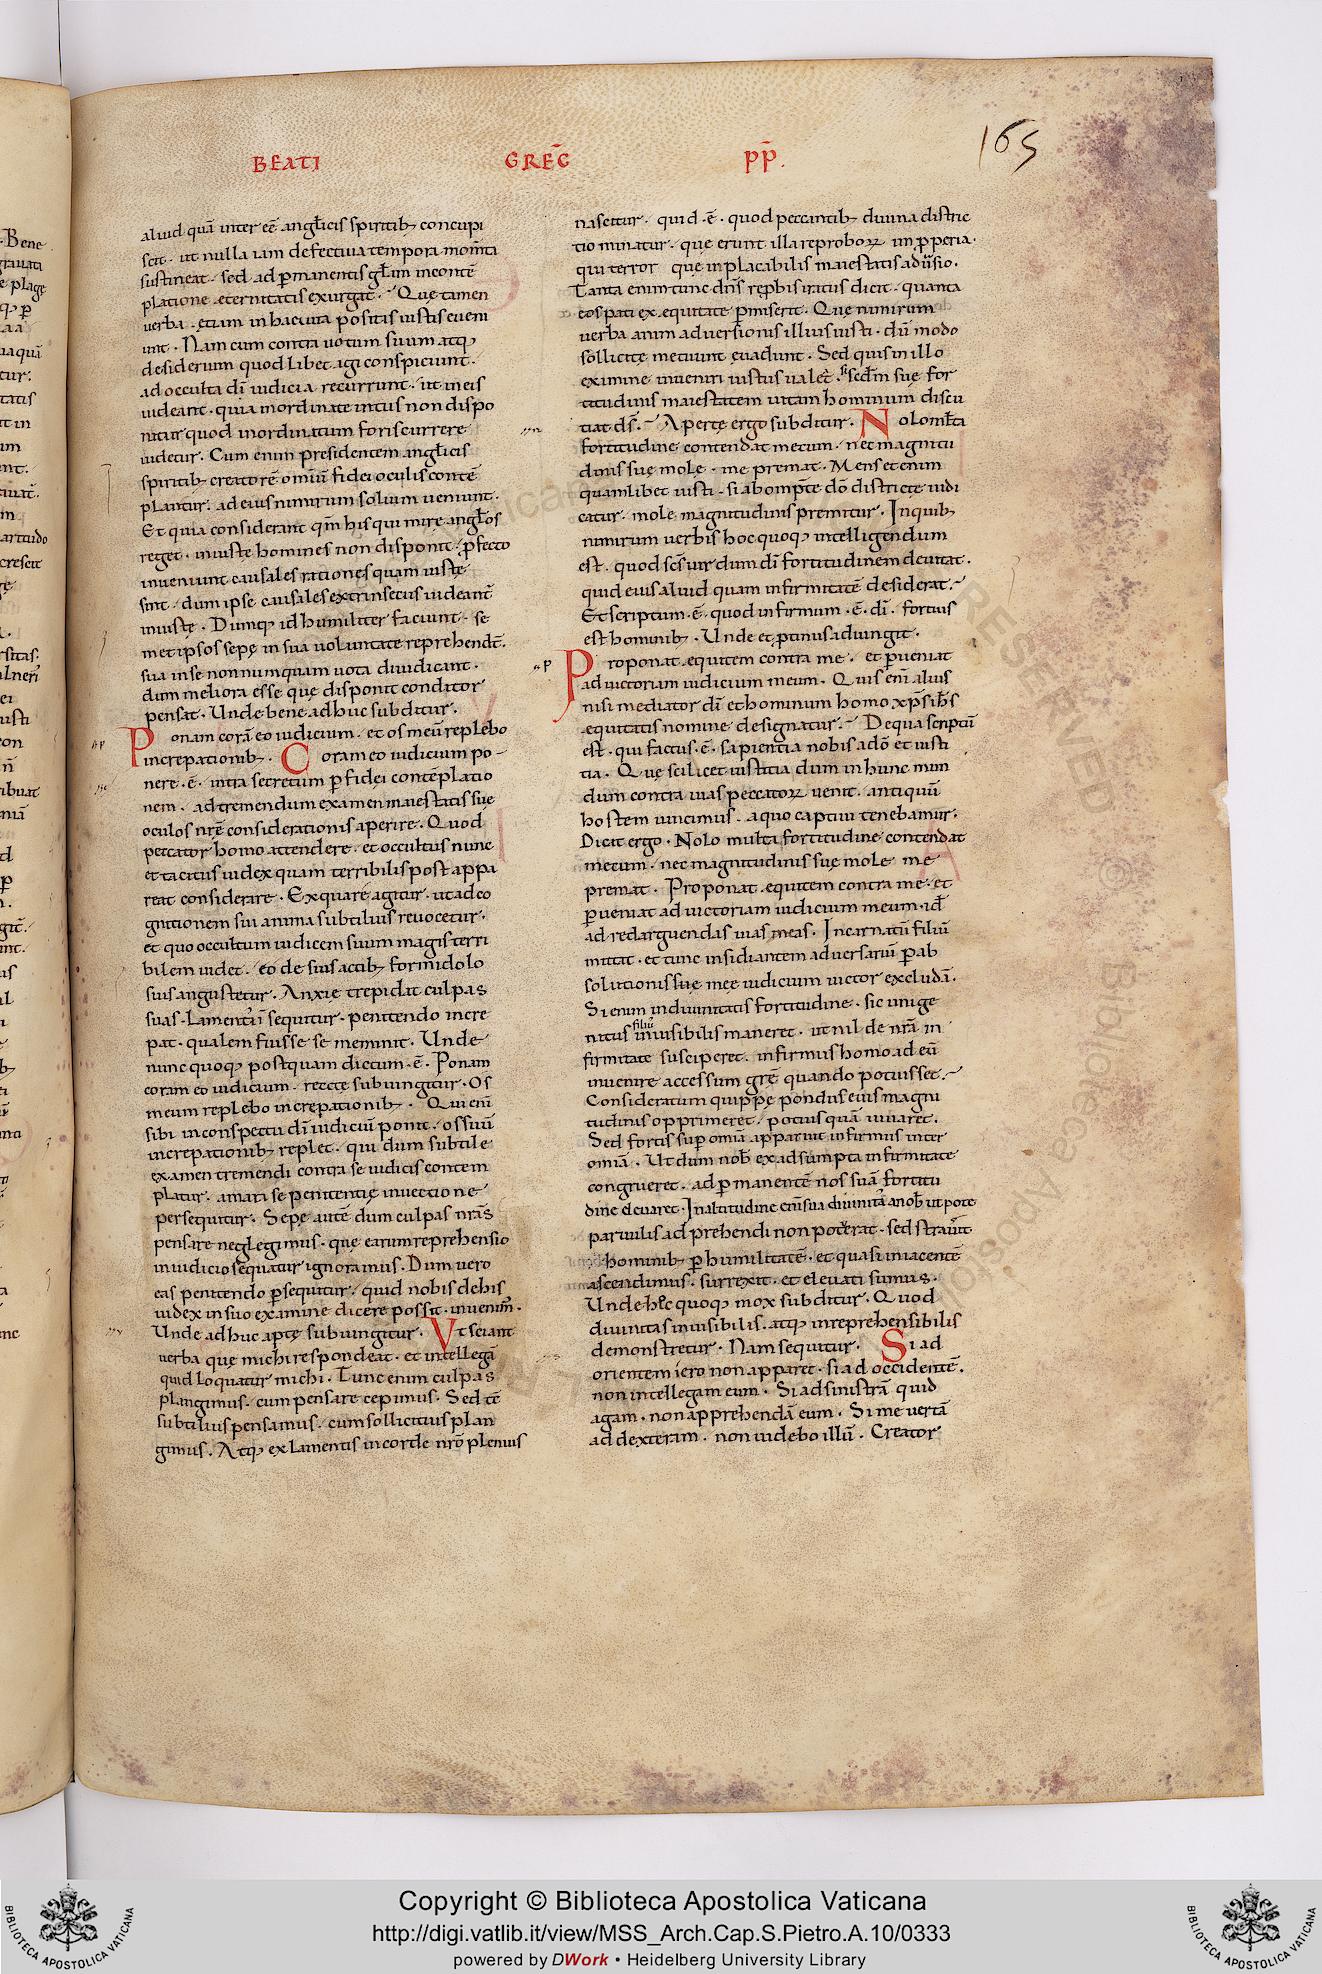 BEATI GREG̅ PP̅.
165
aliud quā inter eē angl̅icis spiritib; concupi
scit · ut nulla iam defectiua tempora mom̅ta
sustineat · sed ad p̲manentis gl̅am inconte̅
platione ęternitatis exurgat · Quę tamen
uerba · etiam in hac uita positis iustis eueni
unt · Nam cum contra uotum suum atq;
desiderium quodlibet agi conspiciunt ·
ad occulta dī iudicia recurrunt · ut in eis
uideant · quia inordinate intus non dispo
nitur quod inordinatum foris currere
uidetur · Cum enim presidentem angl̅icis
spiritib; creatorē omiū fidei oculis conte̅
plantur · ad eius nimirum solium ueniunt ·
Et quia considerant qm̅ his qui mire angl̅os
reget · iniuste homines non disponit · p̲fecto
inueniunt causales rationes quam iustę
sint · dum ipse causales extrinsecus uideant̅
iniustę · Dumq; id humiliter faciunt · se
met ipsos sepę in sua uoluntate reprehendt̅ ·
sua in se nonnumquam uota diiudicant ·
dum meliora esse quę disponit conditor
pensat · Unde bene adhuc subditur ·
Ponam corā eo iudicium · et os meū replebo
increpationib; · Coram eo iudicium po-
nere · ē · intra secretum p̲ fidei conte̅platio
nem · ad tremendum examen maiestatis suę
oculos nr̅ē considerationis aperire · Quod
peccator homo attendere · et occultus nunc
et tacitus iudex quam terribilis post appa
reat considerare · Ex qua re agitur · ut ad co
gnitionem sui anima subtilius reuocetur ·
et quo occultum iudicem suum magis terri
bilem uidet · eo de suis actib; formidolo
suis angustetur · Anxie trepidat culpas
suas · Lamentūī sequitur · penitendo incre
pat · qualem fuisse se meminit · Unde
nunc quoq; postquam dictum · ē · Ponam
coram eo iudicium · recte subiungitur · Os
meum replebo increpationib; · Qui enī
sibi in conspectu dī iudiciū ponit · os suū
increpationib; replet · qui dum subtile
examen tremendi contra se iudicis contem
platur · amari se penitentię inuectione
persequitur · Sepe autē dum culpas nrās
pensare neglegimus · quę earum reprehensio
in iudicio sequatur ignoramus · Dum uero
eas penitendo p̲sequitur · quid nobis de his
iudex in suo examine dicere possit · inuenim̅ ·
Unde adhuc aptę subiungitur · Vt sciant
uerba quę michi respondeat · et intellegā
quid loquatur michi · Tunc enim culpas
plangimus · cum pensare cepimus · Sed tē
subtilius pensamus · cum sollicitius plan
gimus · Atq; ex lamentis in corde nr̅o plenius
nascitur · quid · ē · quod peccantib; diuina distric
tio minatur · quę erunt illa reproboꝝ inp̲peria ·
qui terror quę inplacabilis maiestatis aduersio ·
Tanta enim tunc dn̅s rep̲bis iratus dicit · quanta
eos pati ex equitate p̲miserit · Que nimirum
uerba animaduersionis illius iusti · dū modo
sollicitę metuunt euadunt · Sed quis in illo
examine inueniri iustus ualet̅ · si sc̅dm suę for
titudinis maiestatem uitam hominum discu
tiat ds̅ · Aperte ergo subditur · Nolo ml̅ta
fortitudine contendat mecum · nec magnitu
dinis suę mole · me premat · Mens etenim
quamlibet iusti · si ab omp̅te dō districte iudi
catur · mole magnitudinis premitur · In quib;
nimirum uerbis hoc quoq; intelligendum
est · quod sc̅s uir dum dī fortitudinem deuitat ·
quid eius aliud quam infirmitatē desiderat ·
Et scriptum · ē · quod infirmum · ē · dī · fortius
est hominib; · Unde et p̲tinus adiungit ·
Proponat equitem contra me · et p̲ueniat
ad uictoriam iudicium meum · Quis enī alius
nisi mediator dī et hominum homo xp̅s ih̅s
equitatis nomine designatur · De qua scriptū
est · qui factus · ē · sapientia nobis a dō et iusti
tia · Quę scilicet iustitia dum in hunc mun
dum contra uias peccatoꝝ uenit · antiquū
hostem uincimus · a quo captiui tenebamur ·
Dicit ergo · Nolo multa fortitudine contendat
mecum · nec magnitudinis suę mole me
premat · Proponat equitem contra me · et
p̲ueniat ad uictoriam iudicium meum · id̅
ad redarguendas uias meas · Incarnatū filiū
mittat · et tunc insidiantem aduersariū p̲ ab
solutionis suę mee iudicium uictor excludā ·
Si enim in diuinitatis fortitudine · sic unige
nitus filiū inuisibilis maneret · ut nil de nrā in
firmitate susciperet · infirmus homo ad eū
inuenire accessum grę quando potuisset ·
Consideratum quippę pondus eius magni
tudinis opprimeret · potius quā iuuaret ·
Sed fortis sup̲ omīa apparuit infirmus inter
omīa · Ut dum nob̅ ex adsumpta infirmitate
congrueret · ad p̲manentē nos suā fortitu
dine eleuaret · In altitudine eni̅ sua diuinitas a nob̅ ut pote
paruulis adprehendi non poterat · sed strauit
hominib; p̲ humilitatē · et quasi iniacentē
ascendimus · surrexit · et eleuati sumus ·
Unde hic quoq; mox subditur · Quod
diuinitas inuisibilis · atq; inreprehensibilis
demonstretur · Nam sequitur · Si ad
orientem iero non apparet · si ad occidentē ·
non intellegam eum · Si ad sinistrā quid
agam · non apprehendā eum · Si me uertā
ad dexteram · non uidebo illū · Creator
Copyright © Biblioteca Apostolica Vaticana
http://digi.vatlib.it/view/MSS_Arch.Cap.S.Pietro.A.10/0333
powered by DWork • Heidelberg University Library
BIBLIOTECA APOSTOLICA VATICANA
BIBLIOTECA APOSTOLICA VATICANA